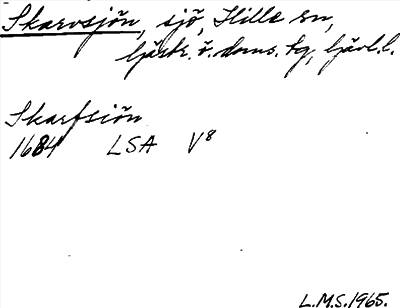 Skarvsjön, sjö, Hille sn,
Gästr. ö. doms. tg, Gävl.l.
Skarfsiön
1684 LSA V8
L.M.S. 1965.